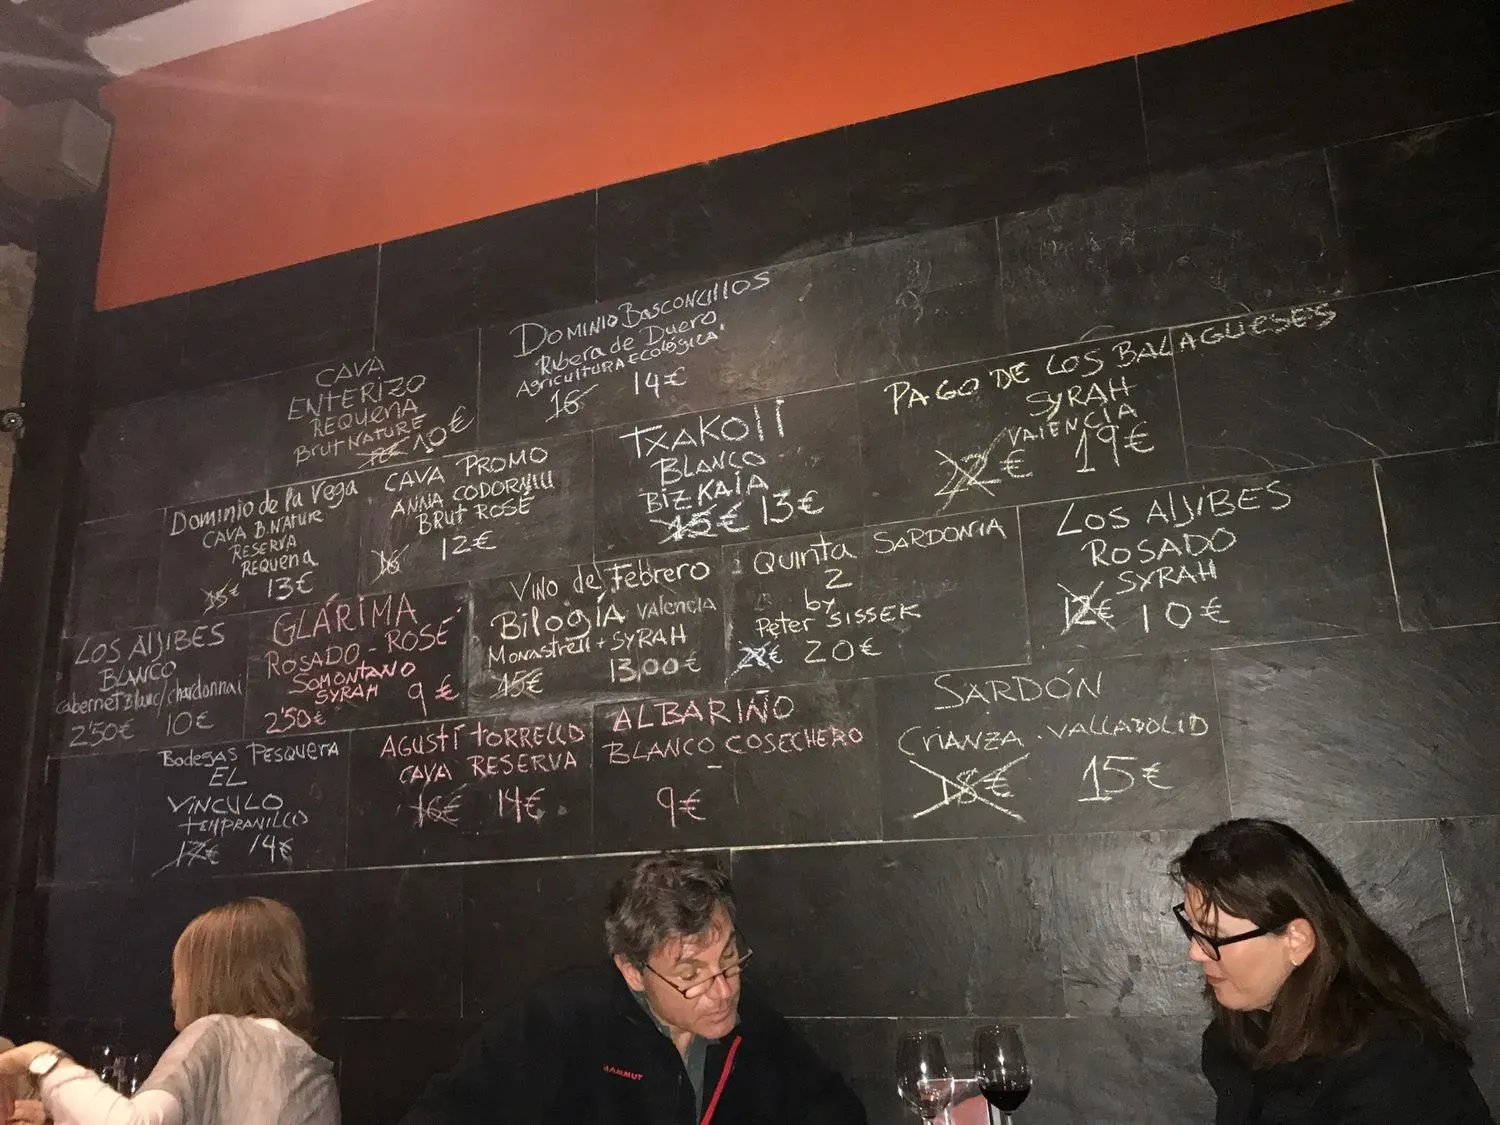 DOMINIO BASCONCILLOS
Ribera de Duero
AGRICULTURA ECOLÓGICA
16 14€
CAVA
ENTERIZO
REQUENA
BRUT NATURE
12€ 10€
PAGO DE LOS BALAGUESES
SYRAH
VALENCIA
22€ 19€
TXAKOLI
BLANCO
BIZKAIA
15€ 13€
CAVA PROMO
ANNA CODORNIU
BRUT ROSÉ
16 12€
Dominio de la Vega
CAVA B.NATURE
RESERVA
REQUENA
15€ 13€
LOS AlJIBES
ROSADO
SYRAH
12€ 10€
QUINTA SARDONIA
2
by
Peter SISSEK
22€ 20€
VINO de Febrero
BilogÍA Valencia
MONASTRELL + SYRAH
15€ 13,00€
GLÁRIMA
ROSADO - ROSÉ
SOMONTANO
SYRAH 9€
2'50€
LOS AlJIBES
BLANCO
cabernet Blanc/chardonnai
2'50€ 10€
SARDÓN
CRIANZA . VALLADOLID
18€ 15€
ALBARIÑO
BLANCO COSECHERO
9€
AGUSTÍ TORRELLO
CAVA RESERVA
16€ 14€
Bodegas PESQUERA
EL
VINCULO
TEMPRANILLO
17€ 14€
MAMMUT